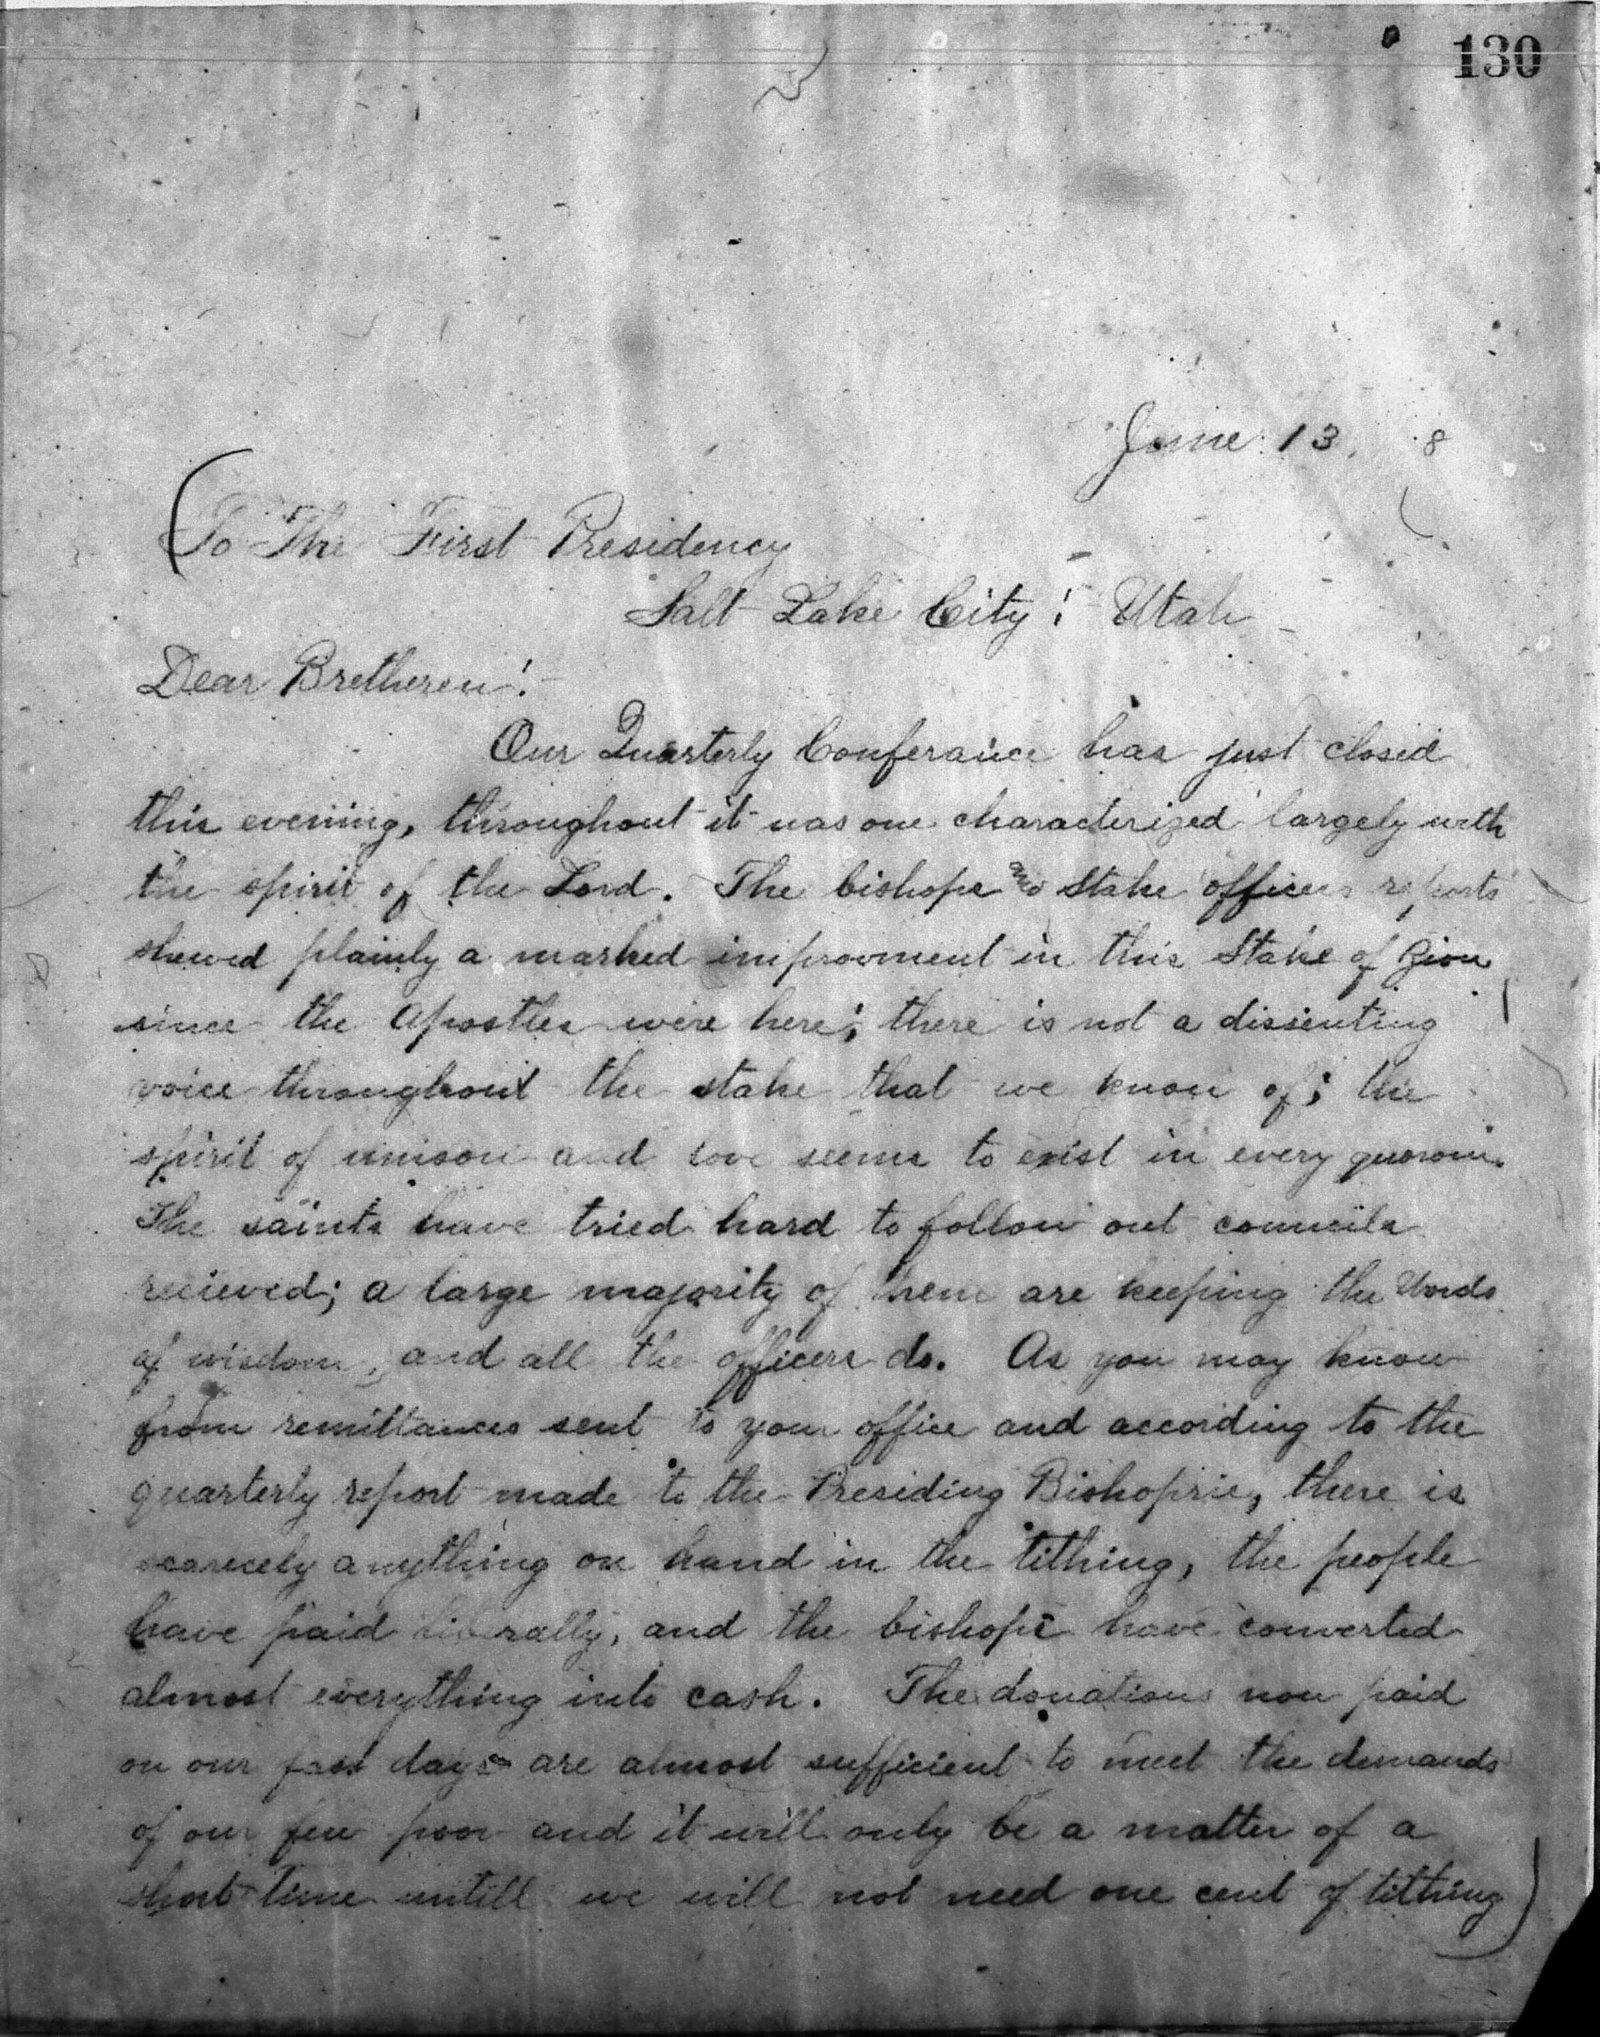 130
June 13, 8
To The First Presidency
Salt Lake City; Utah
Dear Bretheren!
Our Quarterly Conferance has just closed
this evening, throughout it was one characterized largely with
the spirit of the Lord. The bishops and Stake officers reports
shewed plainly a marked improvment in this Stake of Zion
since the Apostles were here; there is not a dissenting
voice throughout the stake that we know of; the
spirit of unison and love seems to exist in every quorum.
The saints have tried hard to follow out councils
recieved; a large majority of them are keeping the Words
of wisdom, and all the officers do. As you may know
from remittances sent to your office and according to the
quarterly report made to the Presiding Bishopric, there is
scarecely anything on hand in the tithing, the people
have paid liberally, and the bishops have converted
almost everything into cash. The donations now paid
on our fast days are almost sufficient to meet the demands
of our few poor and it will only be a matter of a
short time untill we will not need one cent of tithing